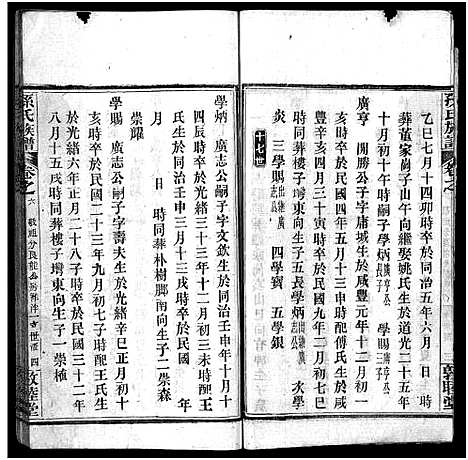 孫氏族譜
卷之
乙巳七月十四卯時卒於同治五年六月 日 時
葬董家崗子山午向繼娶姚氏生於道光二十五年
十月初十午時嗣子學炳廣亨公三子 學賜
廣亨 開勝公子字庸城生於咸豐元年十二月初一
亥時卒於民國四年五月十三申時配傅氏生於咸
豐辛亥四月三十寅時卒於民國九年二月初三
時同葬樓子塆東向生子五長學炳 次學
炎 三學賜出繼廣志公 四學寶 五學銀
十七世
學炳 廣志公嗣子字文欽生於同治壬申年十月十
二戌時卒於光緒三十三年十二月初三未時配王
氏生於同治壬申三月十三戌時卒於民國 年
月 日 時同葬朴樹脚南向生子二崇森
崇躍
學賜 廣志公嗣子字壽夫生於光緒辛巳正月初十
亥時卒於民國二十三年九月初七子時配王氏生
於光緒六年正月二十八子時卒於民國三十二年
八月十五戌時同葬樓子塆東向生子一崇極
孫氏族譜
卷之六
四
敦睦堂